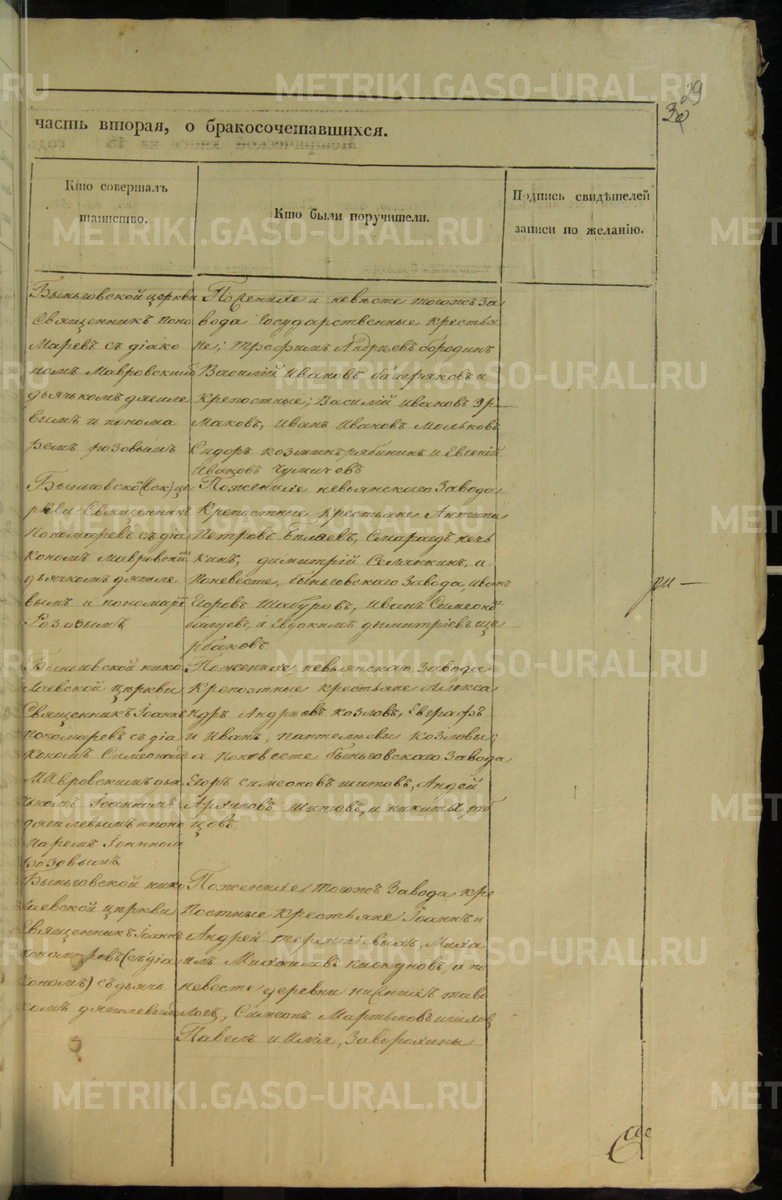 29
30
часть вторая, о бракосочетавшихся.
Кто совершалъ
таинство.
Кто были поручители.
Подпись свидѣтелей
записи по желанію.
Быньговской церкви
Священникъ Поно
маревъ съ діако
номъ Мавровскимъ
дьячкомъ
вымъ и понома
ремъ розовымъ
По женихе и невѣсте тогожъ За
вода Государственные крестья
не; Трофимъ Андреевъ бородинъ
Василій Ивановъ багаряковъ и
крепостные; Василій Ивановъ Эр
маковъ, Иванъ Ивановъ Мольковъ
Сидоръ козминъ рябининъ и Евгеній
Ивановъ Чумичевъ
Священникъ
Пономаревъ съ діа
кономъ Мавровскій
дьячкомъ
вымъ и пономаре
Розовымъ
По женихе невьянскаго Завода
Крепостные крестьяне Антипа
Петровъ Бѣляевъ,
кинъ, димитрій Семянкинъ, а
по невесте, быньговскаго Завода, Иванъ
Егоровъ Шабуровъ, Иванъ Симеоно
и Евдокимъ димитріевъ ще
рбаковъ
нико
лаевской церкви
Священникъ Іоаннъ
пономаревъ съ діа
кономъ Симеономъ
Мавровскимъ дья
чькомъ Іоанномъ
и поно
маремъ Іоанномъ
Розовымъ
По женихе невьянскаго Завода
Крепостные крестьяне Алекса
ндръ Андреевъ козловъ, Еверафъ
и Иванъ пантелеевы козловы;
а по невесте быньговскаго Завода
Егоръ симеоновъ шиповъ, Андрей
шиповъ, и никита
цовъ
Быньговской нико
лаевской церкви
Священникъ Іоаннъ
пономаревъ (съ діа
кономъ) съ дьячь
комъ
По женихе тогожъ Завода кре
постные крестьяне Іоаннъ и
Андрей терентіевымъ, Миха
илъ Михаилавъ пискуновъ, а по
невесте деревни нижнихъ таво
логъ, Симеонъ Мартыновъ
Павелъ и Илія, Заворохины
METRIKI.GASO-URAL.RU